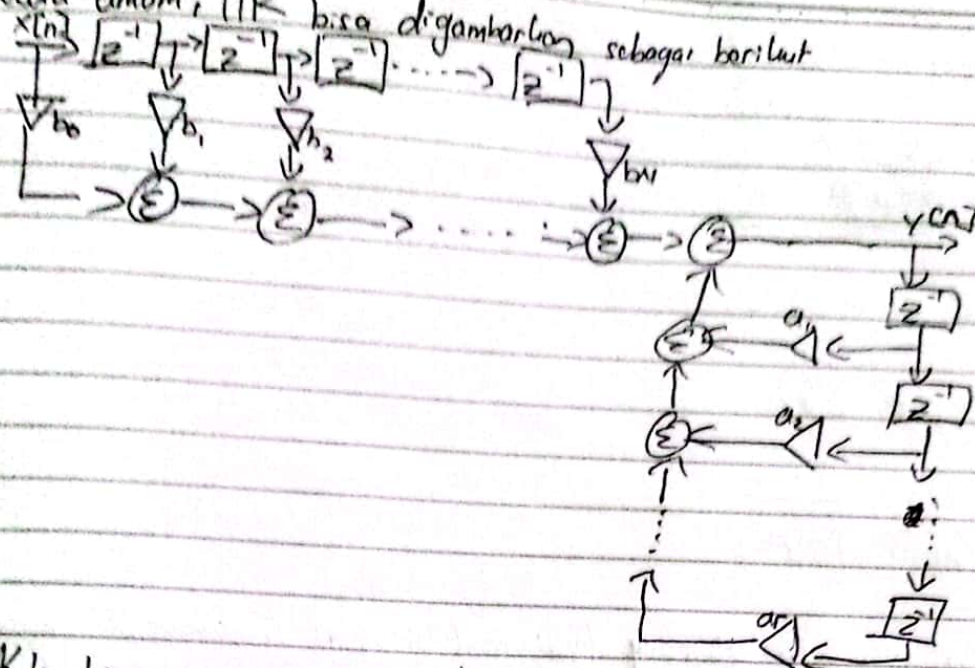 bisa digambarkan sebagai berikut
x[n] z⁻¹ z⁻¹ z⁻¹ z⁻¹
b₀ b₁ b₂ bM
Σ Σ Σ Σ y[n]
z⁻¹
Σ a₁
z⁻¹
Σ a₂
z⁻¹